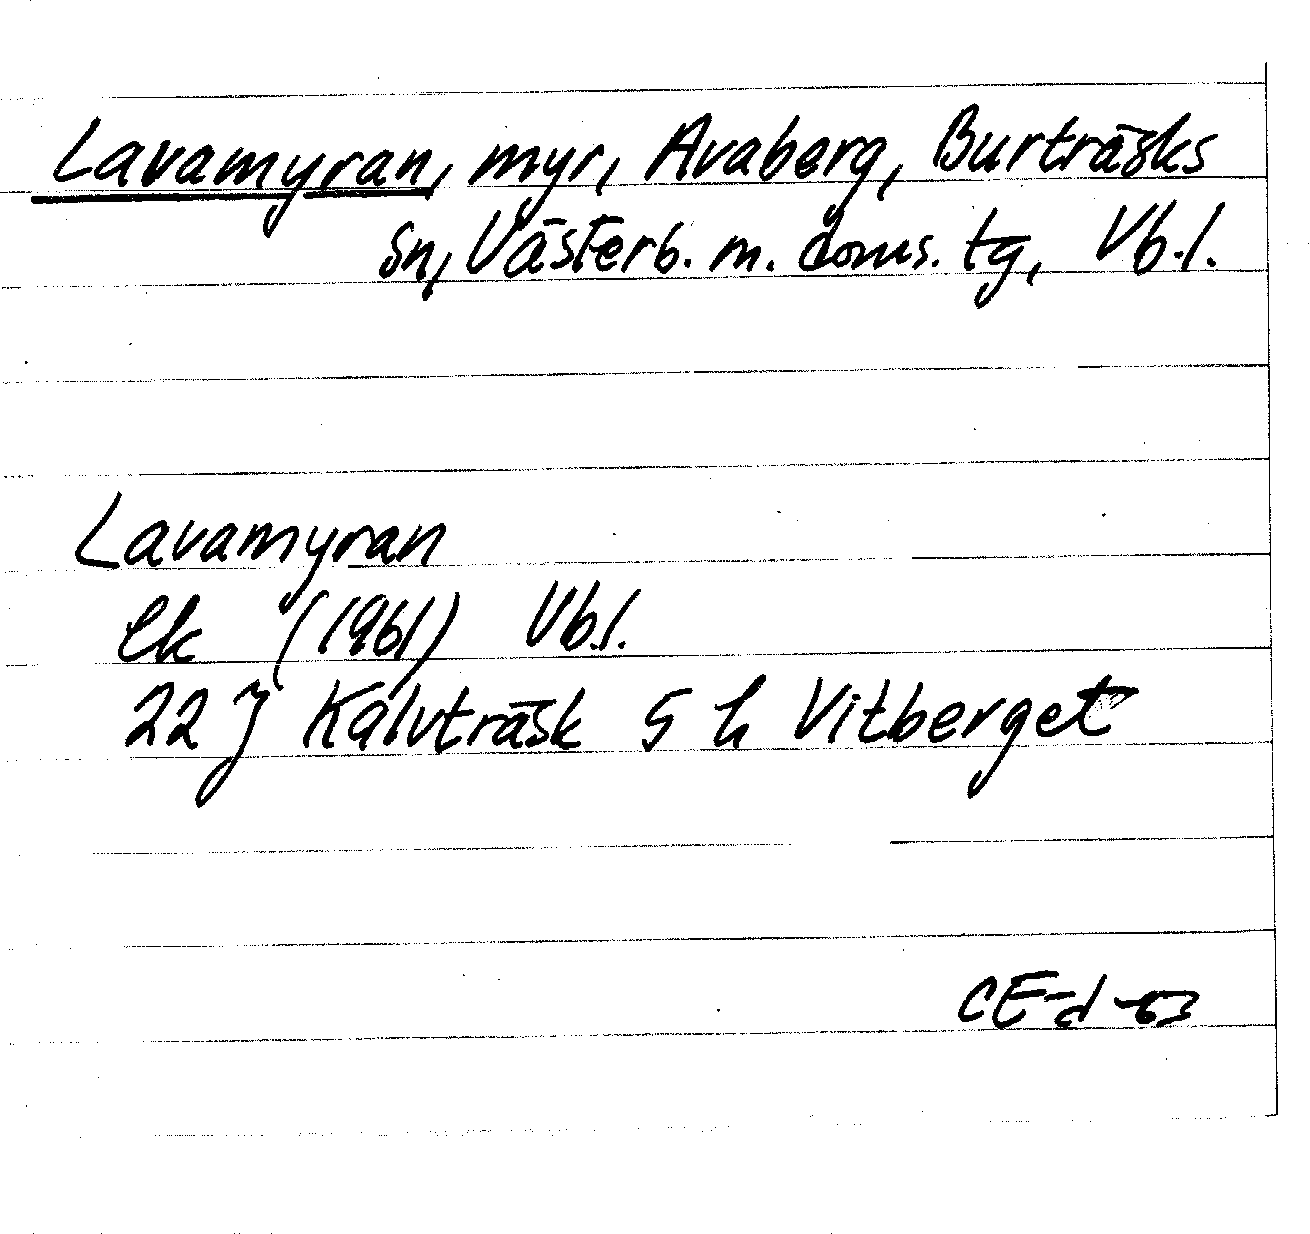 Lavamyran, myr, Avaberg, Burträsks
sn, Västerb. m. doms. tg, Vb.l.
Lavamyran
Ek (1961) Vb.l.
22 J Kalvträsk 5 h Vitberget
CE-d -63